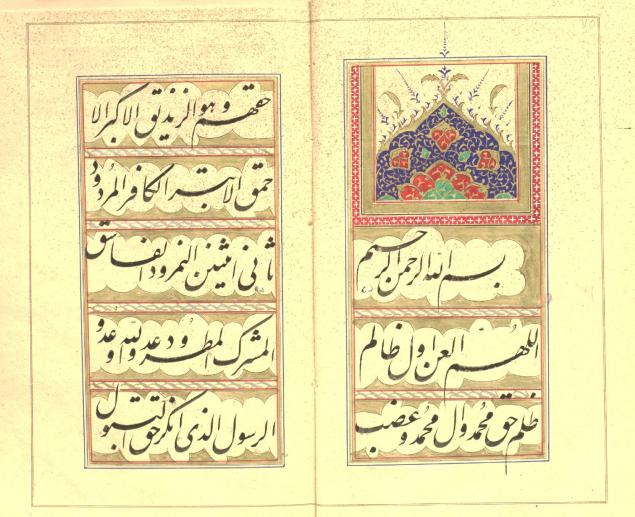 بسم الله الرحمن الرحیم
اللهم العن اول ظالم
ظلم حق محمد وال محمد وغصب
حقهم وهو الزندیق الاکبر الا
حمق الابتر الکافر المردود
ثانی اثنین النمرود الفاسق
المشرک المطرود عدو الله وعدو
الرسول الذی انکر حق البتول